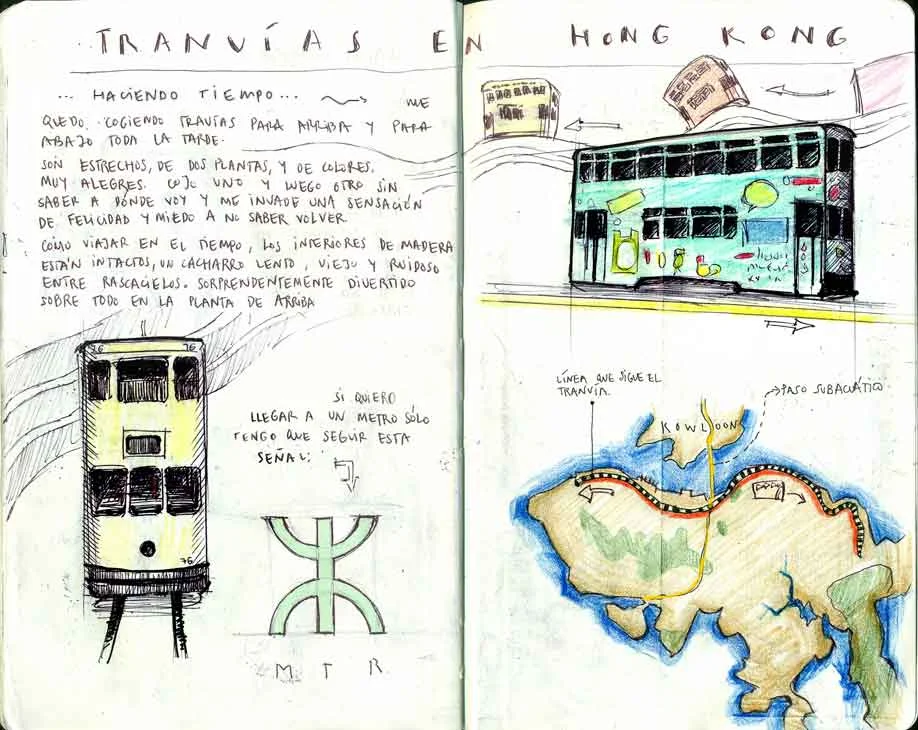 TRANVÍAS EN HONG KONG
... HACIENDO TIEMPO... ME
QUEDO COGIENDO TRAVIAS PARA ARRIBA Y PARA
ABAJO TODA LA TARDE.
SON ESTRECHOS, DE DOS PLANTAS, Y DE COLORES.
MUY ALEGRES. COJO UNO Y LUEGO OTRO SIN
SABER A DÓNDE VOY Y ME INVADE UNA SENSACIÓN
DE FELICIDAD Y MIEDO A NO SABER VOLVER
COMO VIAJAR EN EL TIEMPO, LOS INTERIORES DE MADERA
ESTÁN INTACTOS, UN CACHARRO LENTO, VIEJO Y RUIDOSO
ENTRE RASCACIELOS. SORPRENDENTEMENTE DIVERTIDO
SOBRE TODO EN LA PLANTA DE ARRIBA
76 76
76
SI QUIERO
LLEGAR A UN METRO SÓLO
TENGO QUE SEGUIR ESTA
SEÑAL:
M T R
LÍNEA QUE SIGUE EL
TRANVÍA.
PASO SUBACUÁTICO
KOWLOON